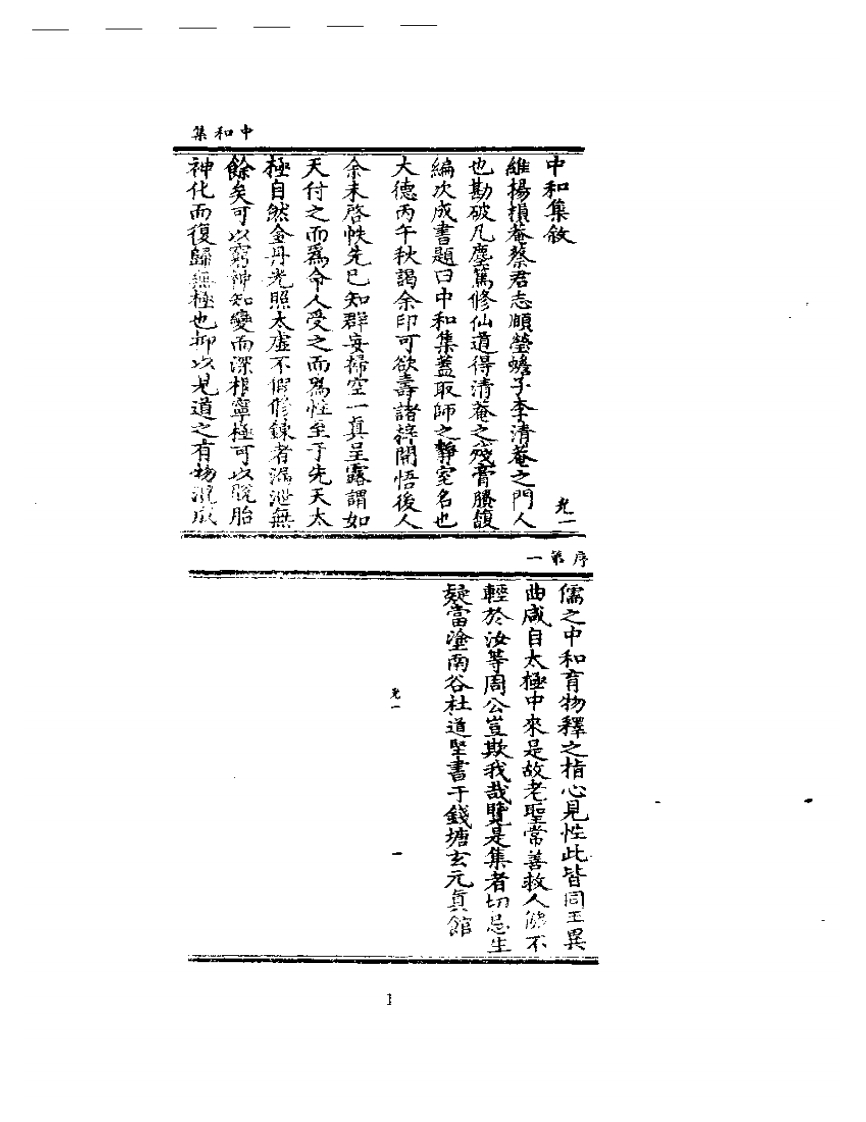 中和集
中和集敘
光一
維揚損菴蔡君志頤瑩蟾子李清菴之門人
也勘破凡塵篤修仙道得清菴之殘膏賸馥
編次成書題曰中和集蓋取師之靜室名也
大德丙午秋謁余印可欲壽諸梓開悟後人
余未啓帙先已知群妄掃空一真呈露謂如
天付之而爲命人受之而爲性至于先天太
極自然金丹光照太虛不假修鍊者漏泄無
餘矣可以窮神知變而深根寧極可以脫胎
神化而復歸無極也抑以見道之有物混成
序第一
儒之中和育物釋之指心見性此皆同工異
曲咸自太極中來是故老聖常善救人佛不
輕於汝等周公豈欺我哉覽是集者切忌生
疑當塗南谷杜道堅書于錢塘玄元真館
光一
一
1